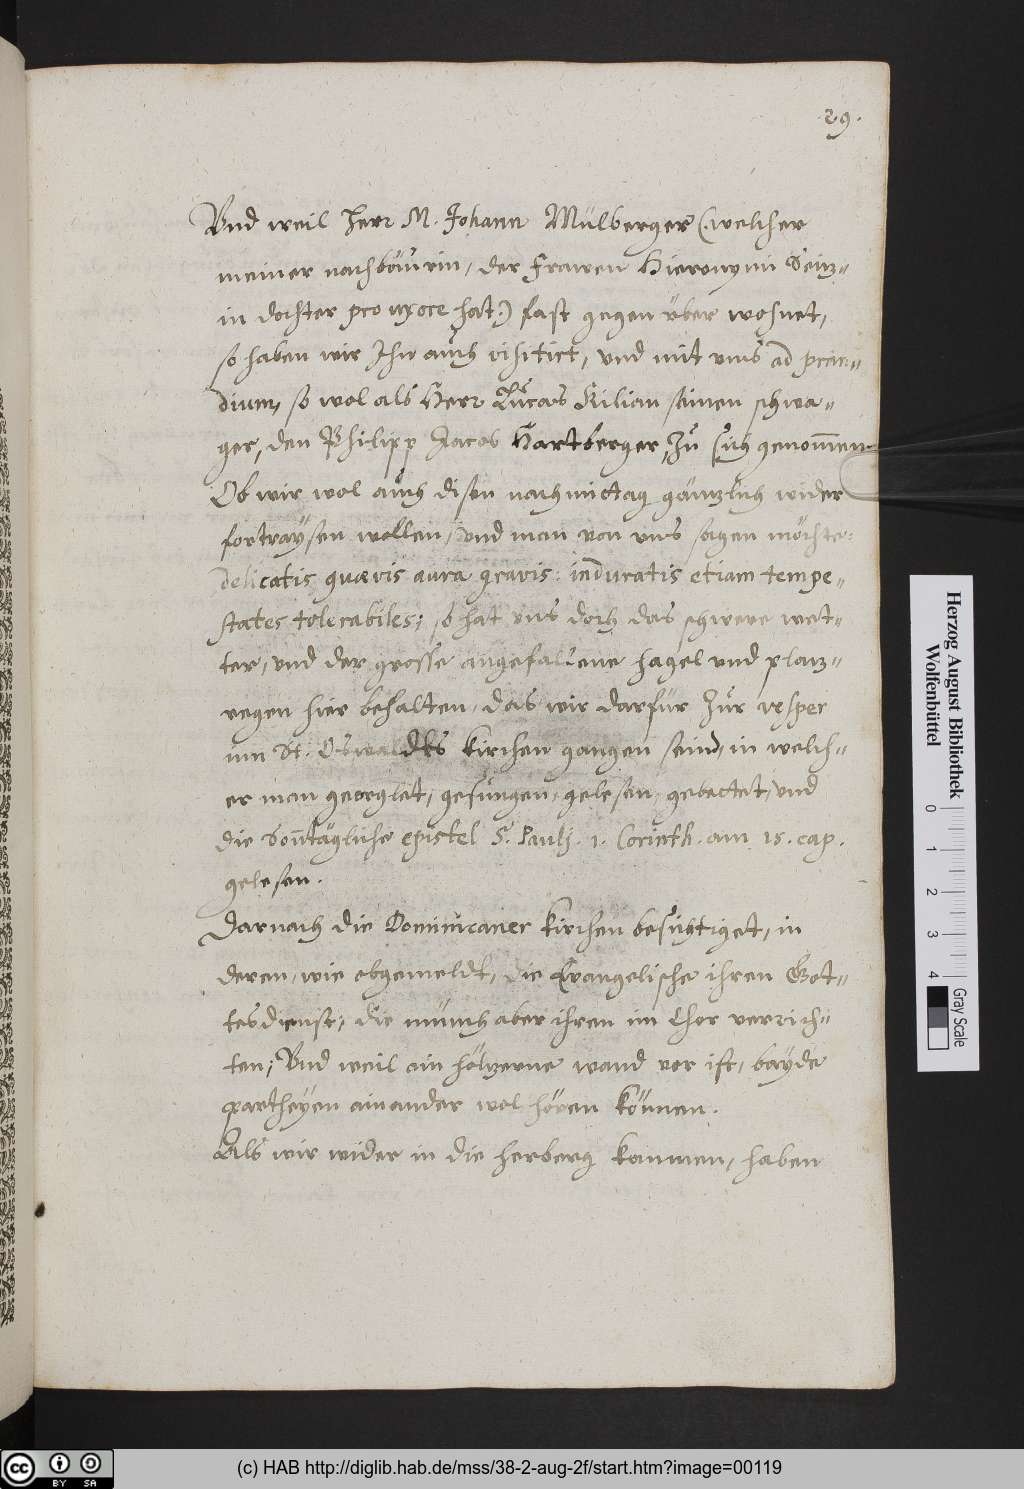 29.
Vnd weil Herr M. Johann Mülberger (: welcher
meiner nachbäurin, der Frawen Hieronymi Deinz-
in dochter pro uxore hat:) fast gegen über wohnet,
so haben wir Ihn auch visitirt, vnd mit vns ad pran-
dium, so wol als Herr Lucas Kilian seinen schwa-
ger, den Philipp Jacob Hartberger, zu sich genommen
Ob wir wol auch disen nachmittag gäntzlich wider
fortraysen wollen, vnd man von vns sagen möchte:
delicatis quævis aura gravis: induratis etiam tempe-
states tolerabiles; so hat vns doch das schwere wet-
ter, vnd der grosse angefallene hagel vnd platz-
regen hier behalten, das wir darfür zur vesper
inn St: Oswaldts kirchen gangen seind, in welch-
er man georglet, gesungen, gelesen, gebettet, vnd
die Sontägliche epistel S. Paulj. 1. Corinth. am 15. cap.
gelesen.
Darnach die Dominicaner kirchen besichtiget, in
deren, wie obgemeldt, die Evangelische ihren Got-
tesdienst, die münch aber ihren im Chor verrich-
ten; Vnd weil ain höltzerne wand vor ist, bayde
partheyen ainander wol hören können.
Als wir wider in die herberg kommen, haben
Herzog August Bibliothek
Wolfenbüttel
0 1 2 3 4
Gray Scale
cc BY SA
(c) HAB http://diglib.hab.de/mss/38-2-aug-2f/start.htm?image=00119